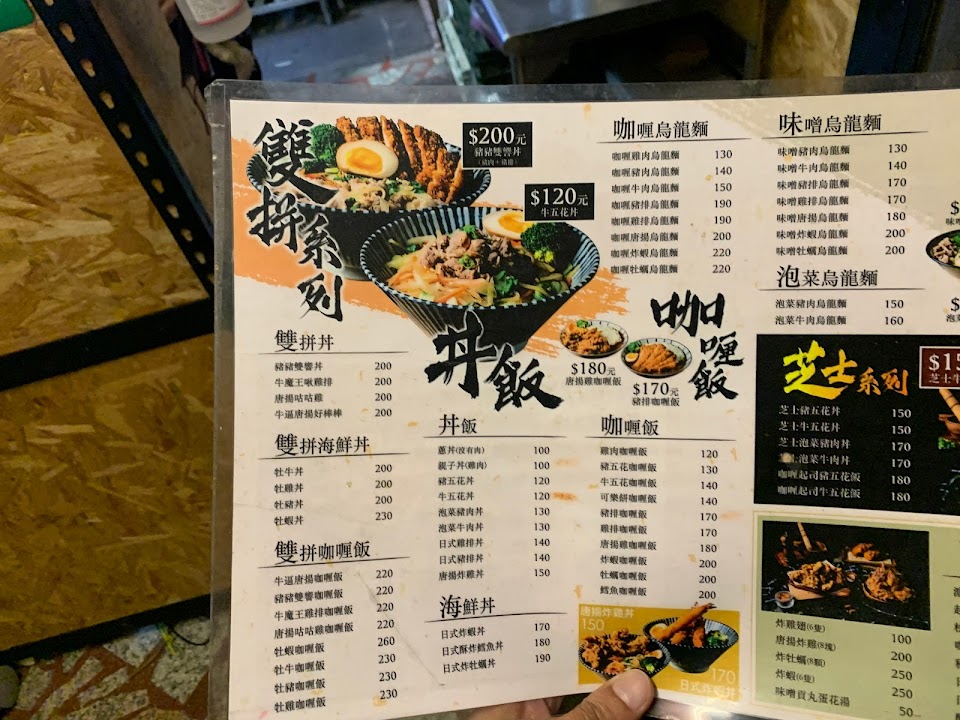 雙拼系列
$200元
豬豬雙響丼
(豬肉+豬排)
$120元
牛五花丼
雙拼丼
豬豬雙響丼 200
牛魔王啾雞排 200
唐揚咕咕雞 200
牛逼唐揚好棒棒 200
雙拼海鮮丼
牡牛丼 200
牡雞丼 200
牡豬丼 200
牡蝦丼 230
雙拼咖喱飯
牛逼唐揚咖喱飯 220
豬豬雙響咖喱飯 220
牛魔王雞排咖喱飯 220
唐揚咕咕雞咖喱飯 220
牡蝦咖喱飯 260
牡牛咖喱飯 230
牡豬咖喱飯 230
牡雞咖喱飯 230
丼飯
丼飯
蔥丼(沒有肉) 100
親子丼(雞肉) 100
豬五花丼 120
牛五花丼 120
泡菜豬肉丼 130
泡菜牛肉丼 130
日式雞排丼 140
日式豬排丼 140
唐揚炸雞丼 150
海鮮丼
日式炸蝦丼 170
日式酥炸鱈魚丼 180
日式炸牡蠣丼 190
咖喱烏龍麵
咖喱雞肉烏龍麵 130
咖喱豬肉烏龍麵 140
咖喱牛肉烏龍麵 150
咖喱豬排烏龍麵 190
咖喱雞排烏龍麵 190
咖喱唐揚烏龍麵 200
咖喱炸蝦烏龍麵 220
咖喱牡蠣烏龍麵 220
咖喱飯
$180元
唐揚雞咖喱飯
$170元
豬排咖喱飯
咖喱飯
雞肉咖喱飯 120
豬五花咖喱飯 130
牛五花咖喱飯 140
可樂餅咖喱飯 140
豬排咖喱飯 170
雞排咖喱飯 170
唐揚雞咖喱飯 180
炸蝦咖喱飯 200
牡蠣咖喱飯 200
鱈魚咖喱飯 200
唐揚炸雞丼
150
170
日式炸蝦丼
味噌烏龍麵
味噌豬肉烏龍麵 130
味噌牛肉烏龍麵 140
味噌豬排烏龍麵 170
味噌雞排烏龍麵 170
味噌唐揚烏龍麵 180
味噌炸蝦烏龍麵 200
味噌牡蠣烏龍麵 200
泡菜烏龍麵
泡菜豬肉烏龍麵 150
泡菜牛肉烏龍麵 160
芝士系列
$15
芝士牛
芝士豬五花丼 150
芝士牛五花丼 150
芝士泡菜豬肉丼 170
芝士泡菜牛肉丼 170
咖喱起司豬五花飯 180
咖喱起司牛五花飯 180
炸雞翅(6隻) 100
唐揚炸雞(8塊) 200
炸牡蠣(8顆) 250
炸蝦(6隻) 250
味噌貢丸蛋花湯 50